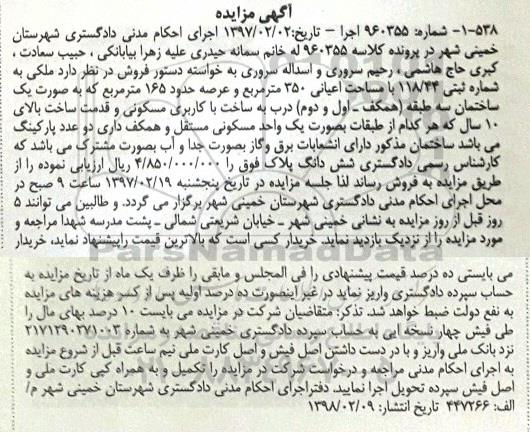 آگهی مزایده
۱-۵۳۸- شماره: ۹۶۰۳۵۵ اجرا - تاریخ:۱۳۹۷/۰۲/۰۲ اجرای احکام مدنی دادگستری شهرستان
خمینی شهر در پرونده کلاسه ۹۶۰۳۵۵ له خانم سمانه حیدری علیه زهرا بیابانکی ، حبیب سعادت ،
کبری حاج هاشمی ، رحیم سروری و اسداله سروری به خواسته دستور فروش در نظر دارد ملکی به
شماره ثبتی ۱۱۸/۴۴ با مساحت اعیانی ۳۵۰ مترمربع و عرصه حدود ۱۶۵ مترمربع که به صورت یک
ساختمان سه طبقه (همکف - اول و دوم) درب به ساخت با کاربری مسکونی و قدمت ساخت بالای
۱۰ سال که هر کدام از طبقات بصورت یک واحد مسکونی مستقل و همکف داری دو عدد پارکینگ
می باشد ساختمان مذکور دارای انشعابات برق وگاز بصورت جدا و آب بصورت مشترک می باشد که
کارشناس رسمی دادگستری شش دانگ پلاک فوق را ۴/۸۵۰/۰۰۰/۰۰۰ ریال ارزیابی نموده را از
طریق مزایده به فروش رساند لذا جلسه مزایده در تاریخ پنجشنبه ۱۳۹۷/۰۲/۱۹ ساعت ۹ صبح در
محل اجرای احکام مدنی دادگستری شهرستان خمینی شهر برگزار می گردد. و طالبین می توانند ۵
روز قبل از روز مزایده به نشانی خمینی شهر - خیابان شریعتی شمالی - پشت مدرسه شهدا مراجعه و
مورد مزایده را از نزدیک بازدید نماید. خریدار کسی است که بالاترین قیمت راپیشنهاد نماید، خریدار
می بایستی ده درصد قیمت پیشنهادی را فی المجلس و مابقی را ظرف یک ماه از تاریخ مزایده به
حساب سپرده دادگستری واریز نماید در غیر اینصورت ده درصد اولیه پس از کسر هزینه های مزایده
به نفع دولت ضبط خواهد شد. تذکر: متقاضیان شرکت در مزایده می بایست ۱۰ درصد بهای مال را
طی فیش چهار نسخه ایی به حساب سپرده دادگستری خمینی شهر به شماره ۲۱۷۱۲۹۰۲۷۱۰۰۳
نزد بانک ملی واریز و با در دست داشتن اصل فیش و اصل کارت ملی نیم ساعت قبل از شروع مزایده
به اجرای احکام مدنی مراجعه و درخواست شرکت در مزایده را تکمیل و به همراه کپی کارت ملی و
اصل فیش سپرده تحویل اجرا نمایید. دفتراجرای احکام مدنی دادگستری شهرستان خمینی شهر م/
الف: ۴۴۷۲۶۶ تاریخ انتشار: ۱۳۹۸/۰۲/۰۹
ParsNamadData